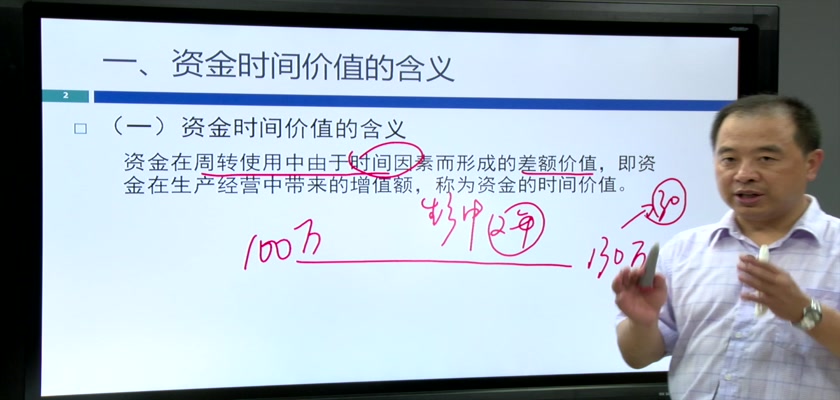 一、资金时间价值的含义
2
（一）资金时间价值的含义
资金在周转使用中由于时间因素而形成的差额价值，即资
金在生产经营中带来的增值额，称为资金的时间价值。
100万
130万